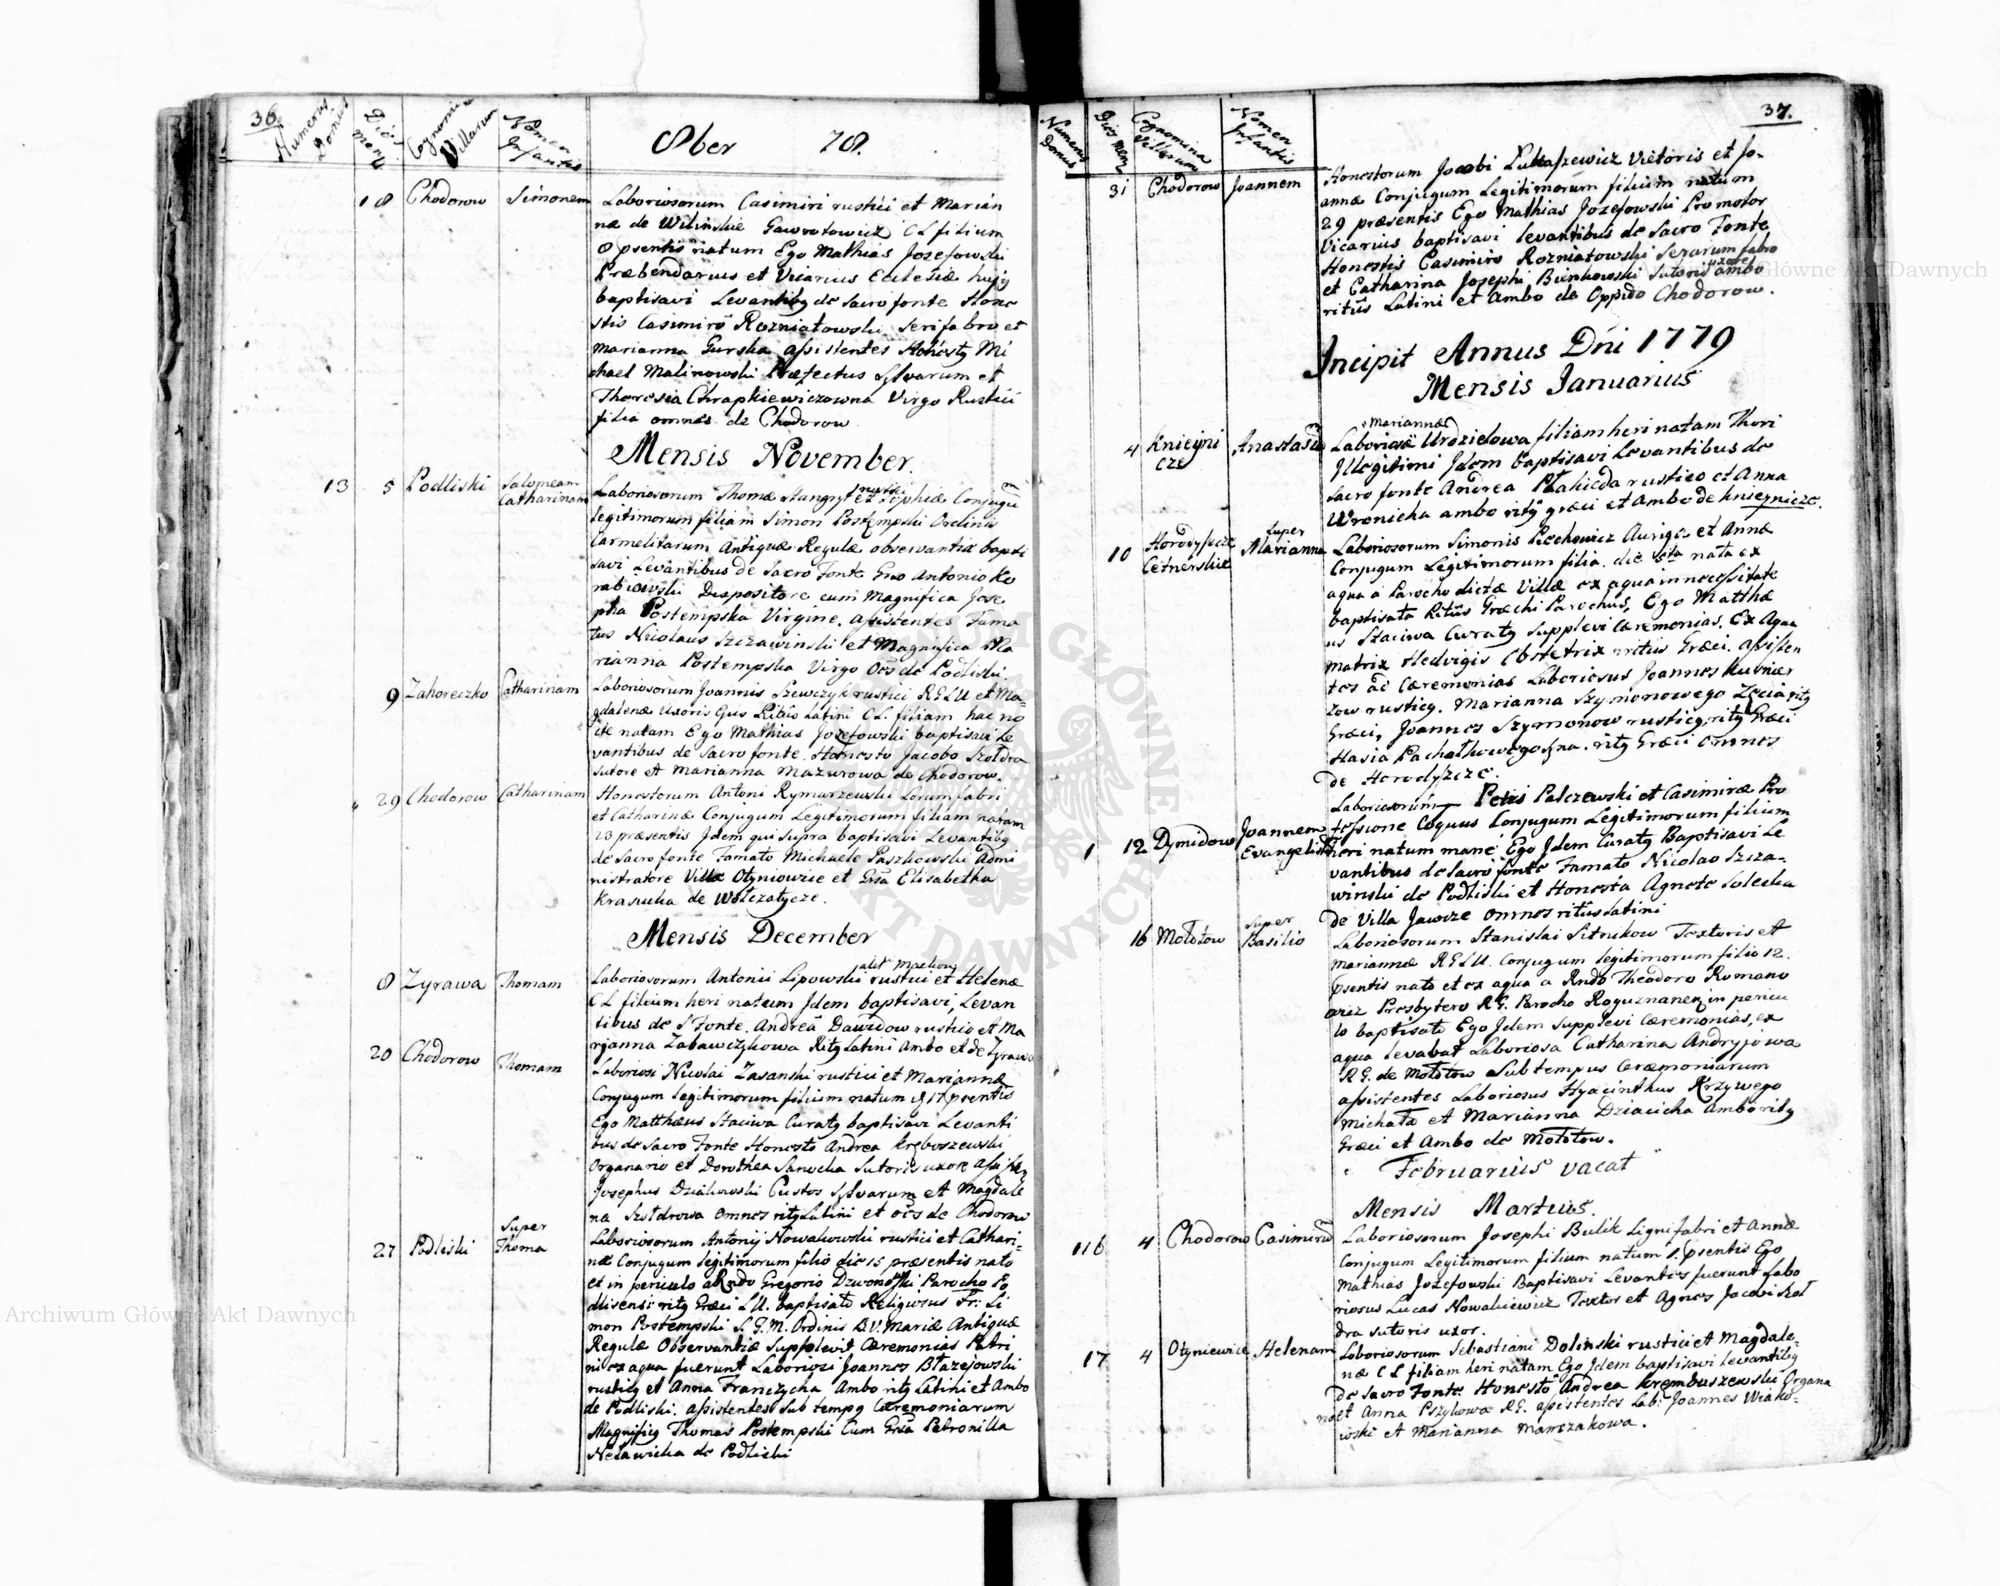 36.
Numerus Domus
Dies Mens
Cognomina Villarum
Nomen Infantis
8ber 78.
18 Chodorow Simonem
Laboriosorum Casimiri rustici et Marian
næ de Wilinskie Gawrotowicz CL filium
8 psentis natum Ego Mathias Jozefowski
Præbendarius et Vicarius Eclesiæ hujus
baptisavi Levantibg de Sacro fonte Hone
stis Casimiro Rozniatowski Serifabro et
Marianna Gurska assistentes Honestg Mi
chael Malinowski Præfectus Sylvarum et
Theresia Chrapkiewiczowna Virgo Rustici
filia omnes de Chodorow
Mensis November.
13 5 Podliski Salomeam Catharinam
Laboriosorum Thomæ rustici et Sophiæ Conjugum
Legitimorum filiam Simon Postempski Ordinis
Carmelitarum Antiquæ Regulæ observantiæ bapti
savi Levantibus de Sacro Fonte Gnso Antonio
Dispositore cum Magnifica Jose
pha Postempska Virgine, assistentes Fama
tus Nicolaus Szczawinski et Magnifica Ma
rianna Postempska Virgo Oes de Podliski.
9 Zahoreczko Catharinam
Laboriosorum Joannis Szewczyk rustici RGLU et Ma=
gdalenæ Uxoris Ejus Ritus Latini CL. filiam hac no
cte natam Ego Mathias Jozefowski baptisavi Le
vantibus de Sacro fonte Honesto Jacobo Szoldra
Sutore et Marianna Mazurowa de Chodorow.
29 Chodorow Catharinam
Honestorum Antoni Rymarzewski Lorumfabri
et Catharinæ Conjugum Legitimorum filiam natam
23 præsentis Idem qui Supra baptisavi Levantibg
de Sacro fonte Famato Michaele Paszkowski Admi
nistratore Villæ Otyniowice et Gnsa Elisabetha
Krasucka de Wolczatycze.
Mensis December
8 Zyrawa Thomam
Laboriosorum Antonii Lipowski rustici et Helenæ
CL filium heri natum Idem baptisavi, Levan
tibus de S Fonte. Andrea Dawidow rustico et Ma
rjanna Zabawczykowa Ritg Latini Ambo et de Zyrawa
20 Chodorow Thomam
Laboriosi Nicolai Zasanski rustici et Mariannæ
Conjugum Legitimorum filium natum 17 psentis
Ego Matthæus Staciwa Curatg baptisavi Levanti
bus de Sacro Fonte Honesto Andrea Kreboszewski
Organario et Dorothea Sanocka Sutoris uxore
Josephus Custos Sylvarum et Magdale
na Szoldrowa omnes ritg Latini et oes de Chodorow
27 Podliski Super Thoma
Laboriosorum Antonij Nowakowski rustici et Cathari=
næ Conjugum Legitimorum filio die 15 præsentis nato
et in periculo ab Rndo Gregorio Parocho Po
dlisensi ritg Græci LU. baptisato Religiosus Fr: Si
mon Postempski S.T.M. Ordinis B.V. Mariæ Antiquæ
Regulæ Observantiæ Supplevit Cæremonias Patri
ni ex aqua fuerunt Laboriosi Joannes Błazejowski
rusticg et Anna Franczycha Ambo ritg Latini et Ambo
de Podliski. assistentes sub tempg Cæremoniarum
Magnificg Thomas Postempski Cum Gnsa Petronilla
de Podliski
37.
Numerus Domus
Dies Mens
Cognomina Villarum
Nomen Infantis
31 Chodorow Joannem
Honestorum Jacobi Lukaszewicz Vietoris et Jo-
annæ Conjugum Legitimorum filium natum
29 præsentis Ego Mathias Jozefowski Promotor
Vicarius baptisavi levantibus de Sacro Fonte
Honestis Casimiro Rozniatowski Serarum fabro
et Catharina Josephi Bienkowski Sutoris uxore ambo
ritus Latini et Ambo de Oppido Chodorow.
Incipit Annus Dni 1779
Mensis Januarius
4 Knieyni cze Anastasia
Laboriosæ Mariannæ Urdzielowa filiam heri natam Thori
Illegitimi Idem baptisavi Levantibus de
Sacro fonte Andrea rustico et Anna
Wronicha ambo ritg græci et Ambo de Knieynicze.
10 Horodyszcze Cetnerskie Super Marianna
Laboriosorum Simonis Piechowicz Aurigæ et Annæ
Conjugum Legitimorum filia. die 6ta nata ex
aqua a Parocho dictæ Villæ ex aqua in necessitate
baptisata Ritus Græchi Parochus, Ego Matthæ
us Staciwa Curatg Supplevi Cæremonias. Ex Aqua
matrix Hedvigis Obstetrix ritus Græci. Assisten
tes ad Cæremonias Laboriosus Joannes Kusnier
zow rusticg. Marianna Szymonowego ritg
Græci, Joannes Szymonow rusticg ritg Græci
Hasia ritg Græci omnes
de Horodyszcze.
1 12 Dymidow Joannem Evangelista
Laboriosorum Petri Palczewski et Casimiræ Pro
fessione Coquus Conjugum Legitimorum filium
heri natum mane Ego Idem Curatg Baptisavi Le
vantibus de Sacro fonte Famato Nicolao Szcza-
winski de Podliski et Honesta Agnete Solecka
de Villa Jawcze omnes ritus Latini
16 Mołotow Super Basilio
Laboriosorum Stanislai Sitnikow Textoris et
Mariannæ RGLU. Conjugum legitimorum filio 12.
psentis nato et ex aqua a Rndo Theodoro Romano
wicz Presbytero RG. Parocho in pericu
lo baptisato Ego Idem Supplevi Cæremonias, ex
aqua levabat Laboriosa Catharina Andryjowa
RG. de Mołotow Sub tempus Ceræmoniarum
assistentes Laboriosus Hyacinthus Krzywego
Michała et Marianna Dziacicha Ambo ritg
Græci et Ambo de Mołotow.
Februarius vacat
Mensis Martius.
116 4 Chodorow Casimirum
Laboriosorum Josephi Bulik Lignifabri et Annæ
Conjugum Legitimorum filium natum 1. psentis Ego
Mathias Jozefowski Baptisavi Levantes fuerunt Labo
riosus Lucas Nowakiewicz Textor et Agnes Jacobi Szol
dra sutoris uxor.
17 4 Otyniewice Helenam
Laboriosorum Sebastiani Dolinski rustici et Magdale-
næ CL filiam heri natam Ego Idem baptisavi levantibg
de Sacro Fonte Honesto Andrea Krembuszewski Organa
rio et Anna Pszykowa RG. assistentes Lab: Joannes Wiako-
wski et Marianna Marczakowa.
Archiwum Główne Akt Dawnych
Archiwum Główne Akt Dawnych
ARCHIWUM GŁÓWNE AKT DAWNYCH